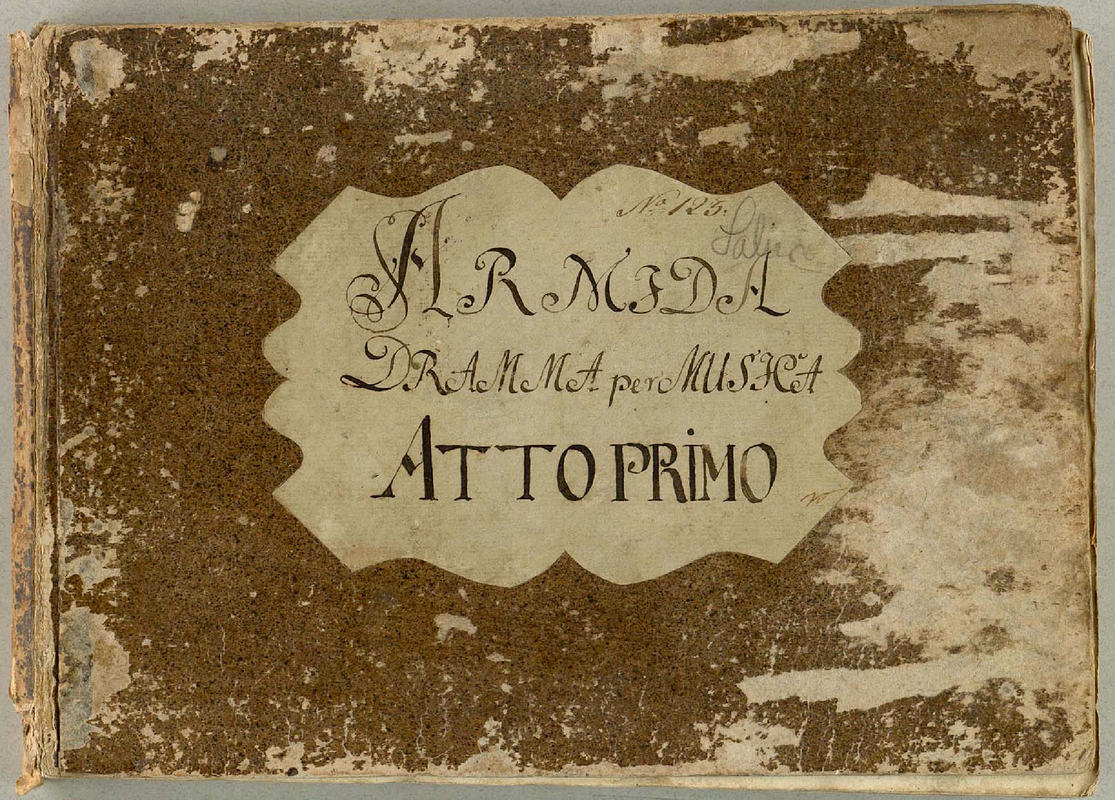 No. 123.
ARMIDA
DRAMMA per MUSICA
ATTO PRIMO